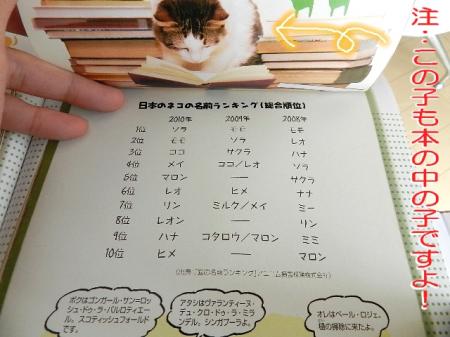 注:この子も本の中の子ですよ!
日本のネコの名前ランキング(総合順位)
2010年 2009年 2008年
1位 ソラ モモ モモ
2位 モモ ソラ レオ
3位 ココ サクラ ハナ
4位 メイ ココ/レオ ソラ
5位 マロン —— サクラ
6位 レオ ヒメ ナナ
7位 リン ミルク/メイ ミー
8位 レオン —— リン
9位 ハナ コタロウ/マロン ミミ
10位 ヒメ —— マロン
(出典:「猫の名前ランキング」アニコム損害保険株式会社)
ボクはゴンガール・サン=ロッ
シュ・ドゥ・ラ・バルロティエー
ル。スコティッシュフォールド
です。
アタシはヴァランティーヌ・
デュ・クロ・ドゥ・ラ・ミラ
ンデル。シンガプーラよ。
オレはペール・ロジェ。
の掃除に来たよ。